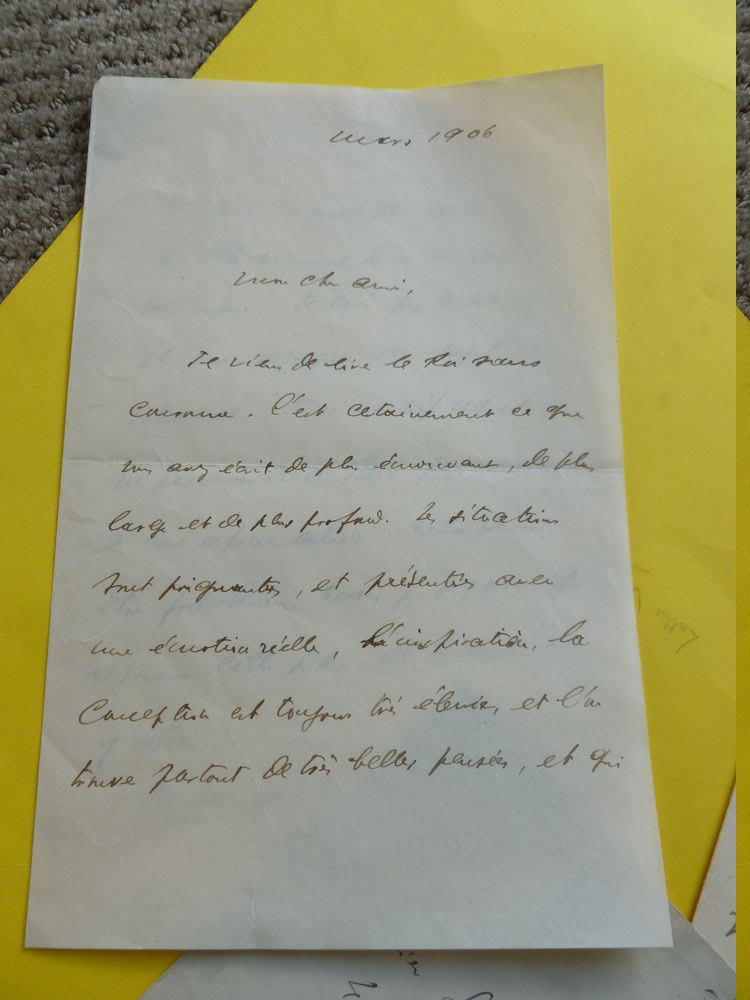 mars 1906
mon cher ami,
Je viens de lire le Roi sans
couronne. C'est certainement ce que
vous avez écrit de plus émouvant, de plus
large et de plus profond. Les situations
sont poignantes, et présentées avec
une émotion réelle, l'inspiration, la
conception est toujours très élevée, et l'on
trouve partout de très belles pensées, et qui